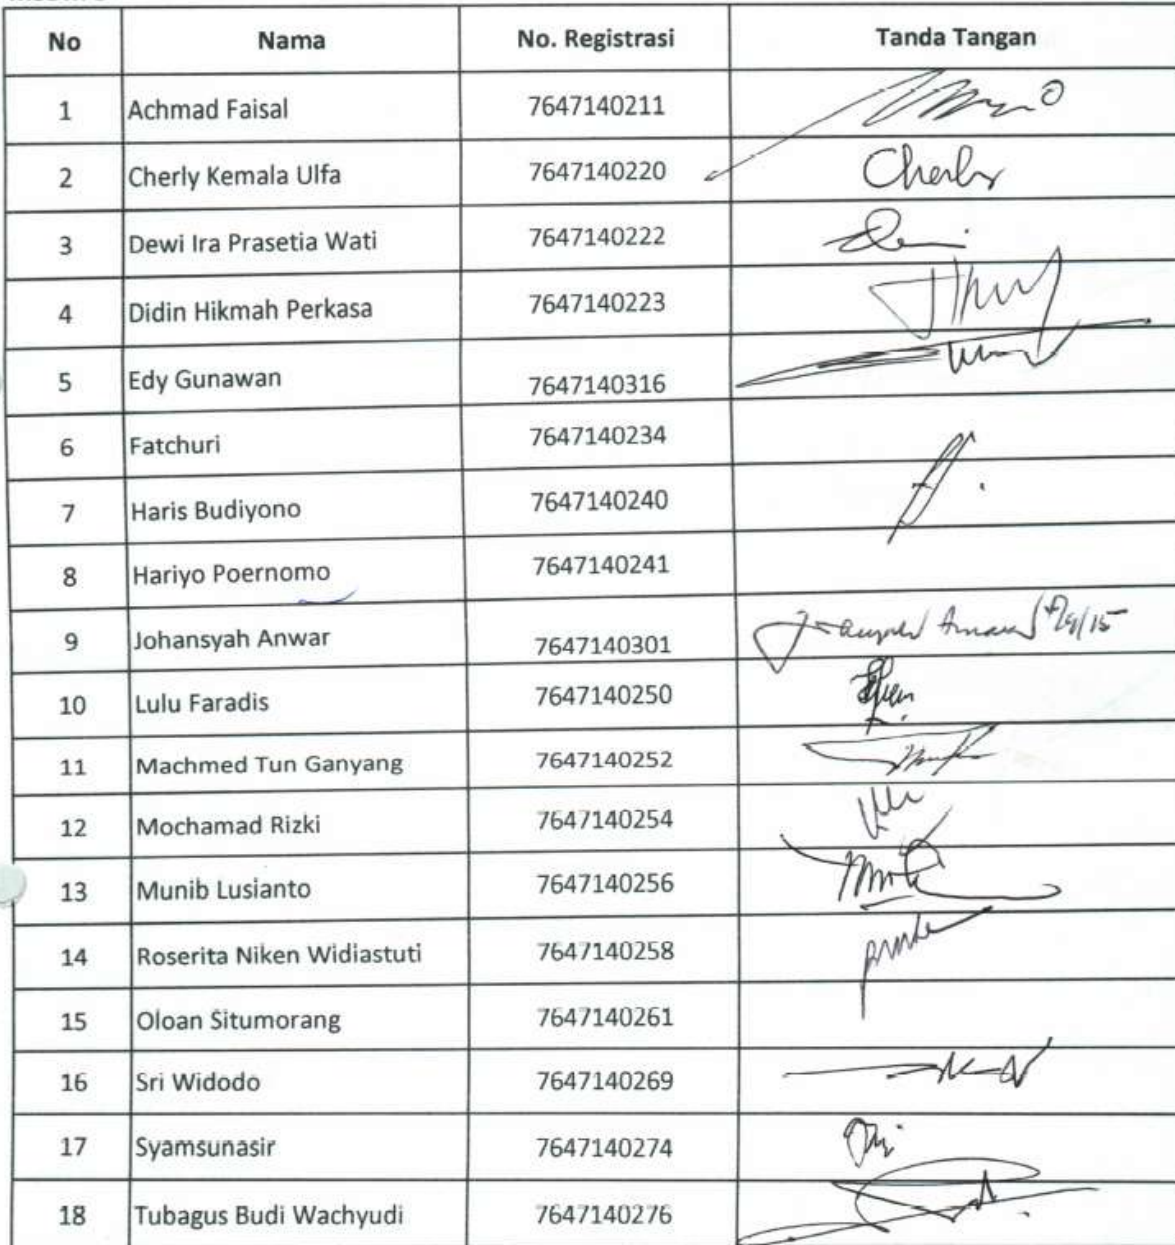 No Nama No. Registrasi Tanda Tangan
1 Achmad Faisal 7647140211
2 Cherly Kemala Ulfa 7647140220 Cherly
3 Dewi Ira Prasetia Wati 7647140222
4 Didin Hikmah Perkasa 7647140223
5 Edy Gunawan 7647140316
6 Fatchuri 7647140234
7 Haris Budiyono 7647140240
8 Hariyo Poernomo 7647140241
9 Johansyah Anwar 7647140301
10 Lulu Faradis 7647140250
11 Machmed Tun Ganyang 7647140252
12 Mochamad Rizki 7647140254
13 Munib Lusianto 7647140256
14 Roserita Niken Widiastuti 7647140258
15 Oloan Situmorang 7647140261
16 Sri Widodo 7647140269
17 Syamsunasir 7647140274
18 Tubagus Budi Wachyudi 7647140276